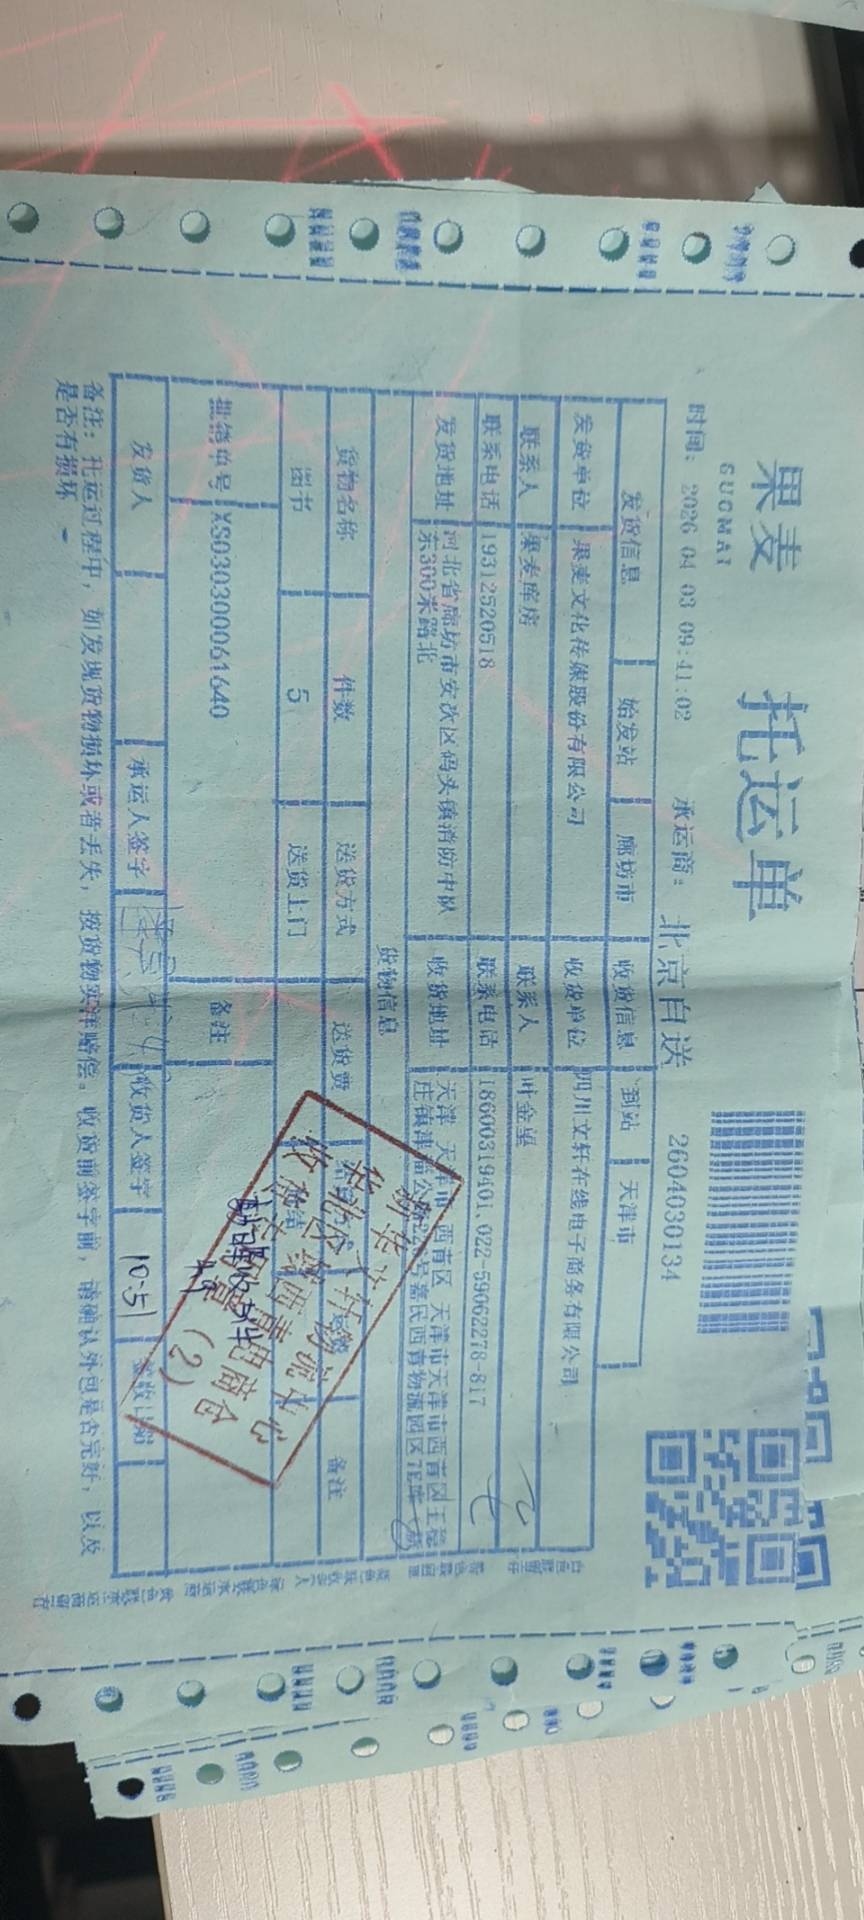 果麦
GUOMAI
托运单
时间: 2026 04 03 09:41:02 承运商: 北京自送 2604030134
发货信息 始发站 廊坊市 收货信息 到站 天津市
发货单位 果麦文化传媒股份有限公司 收货单位 四川文轩在线电子商务有限公司
联系人 果麦库房 联系人 叶金星
联系电话 19312520518 联系电话 18600319401 022-59062278-817
发货地址 河北省廊坊市安次区码头镇消防中队东300米路北 收货地址 天津 天津市 西青区 天津市天津市西青区王稳庄镇津淄公路 号嘉民西青物流园区7E库
货物信息
货物名称 件数 送货方式 送货费 备注
图书 5 送货上门
批销单号 XS030300061640 备注
发货人 承运人签字 收货人签字 10:51
备注: 托运过程中, 如发现货物损坏或者丢失, 按货物实洋赔偿。收货前签字前, 请确认外包是否完好, 以及
是否有损坏
新华文轩物流中心
华北区域西青电商仓
收货专用章 (2)